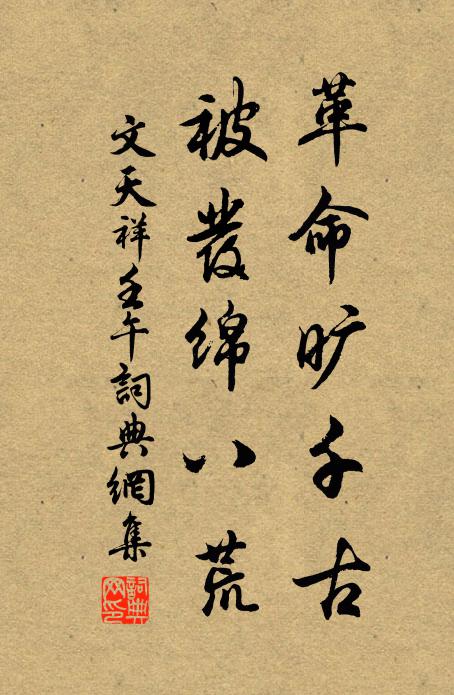 革命旷千古
被發绵八荒
文天祥壬午詞典網集
詞典網印